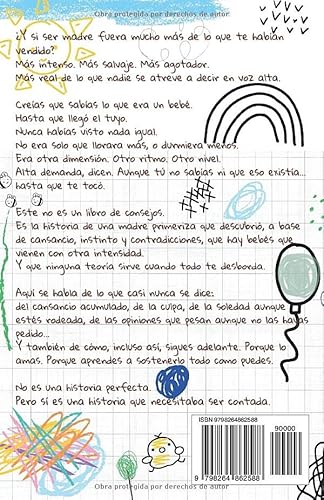 Obra protegida por derechos de autor
¿Y si ser madre fuera mucho más de lo que te habían
vendido?
Más intenso. Más salvaje. Más agotador.
Más real de lo que nadie se atreve a decir en voz alta.
Creías que sabías lo que era un bebé.
Hasta que llegó el tuyo.
Nunca habías visto nada igual.
No era solo que llorara más, o durmiera menos.
Era otra dimensión. Otro ritmo. Otro nivel.
Alta demanda, dicen. Aunque tú no sabías ni que eso existía...
hasta que te tocó.
Este no es un libro de consejos.
Es la historia de una madre primeriza que descubrió, a base
de cansancio, instinto y contradicciones, que hay bebés que
vienen con otra intensidad.
Y que ninguna teoría sirve cuando todo te desborda.
Aquí se habla de lo que casi nunca se dice:
del cansancio acumulado, de la culpa, de la soledad aunque
estés rodeada, de las opiniones que pesan aunque no las hayas
pedido...
Y también de cómo, incluso así, sigues adelante. Porque lo
amas. Porque aprendes a sostenerlo todo como puedes.
No es una historia perfecta.
Pero sí es una historia que necesitaba ser contada.
ISBN 9798264862588
90000
9 798264 862588
Obra protegida por derechos de autor